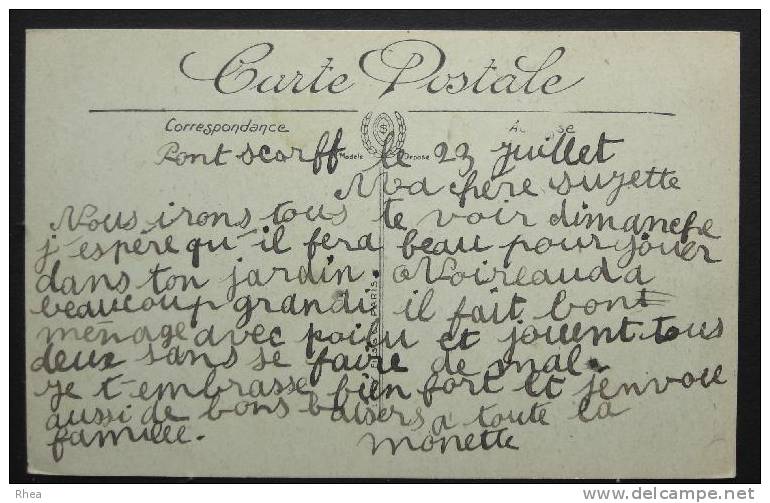 Carte Postale
Correspondance
Adresse
Modèle Déposé
Pont scorff le 23 juillet
Ma chère suzette
Nous irons tous te voir dimanche
j'espère qu-il fera beau pour jouer
dans ton jardin. Noireaud a
beaucoup grandu il fait bont
ménage avec poilu et jouent tous
deux sans se faire de mal.
je t-embrasse bien fort et j'envoie
aussi de bons baisers a toute la
famille.
monette
PARIS
Rhea
www.delcampe.net